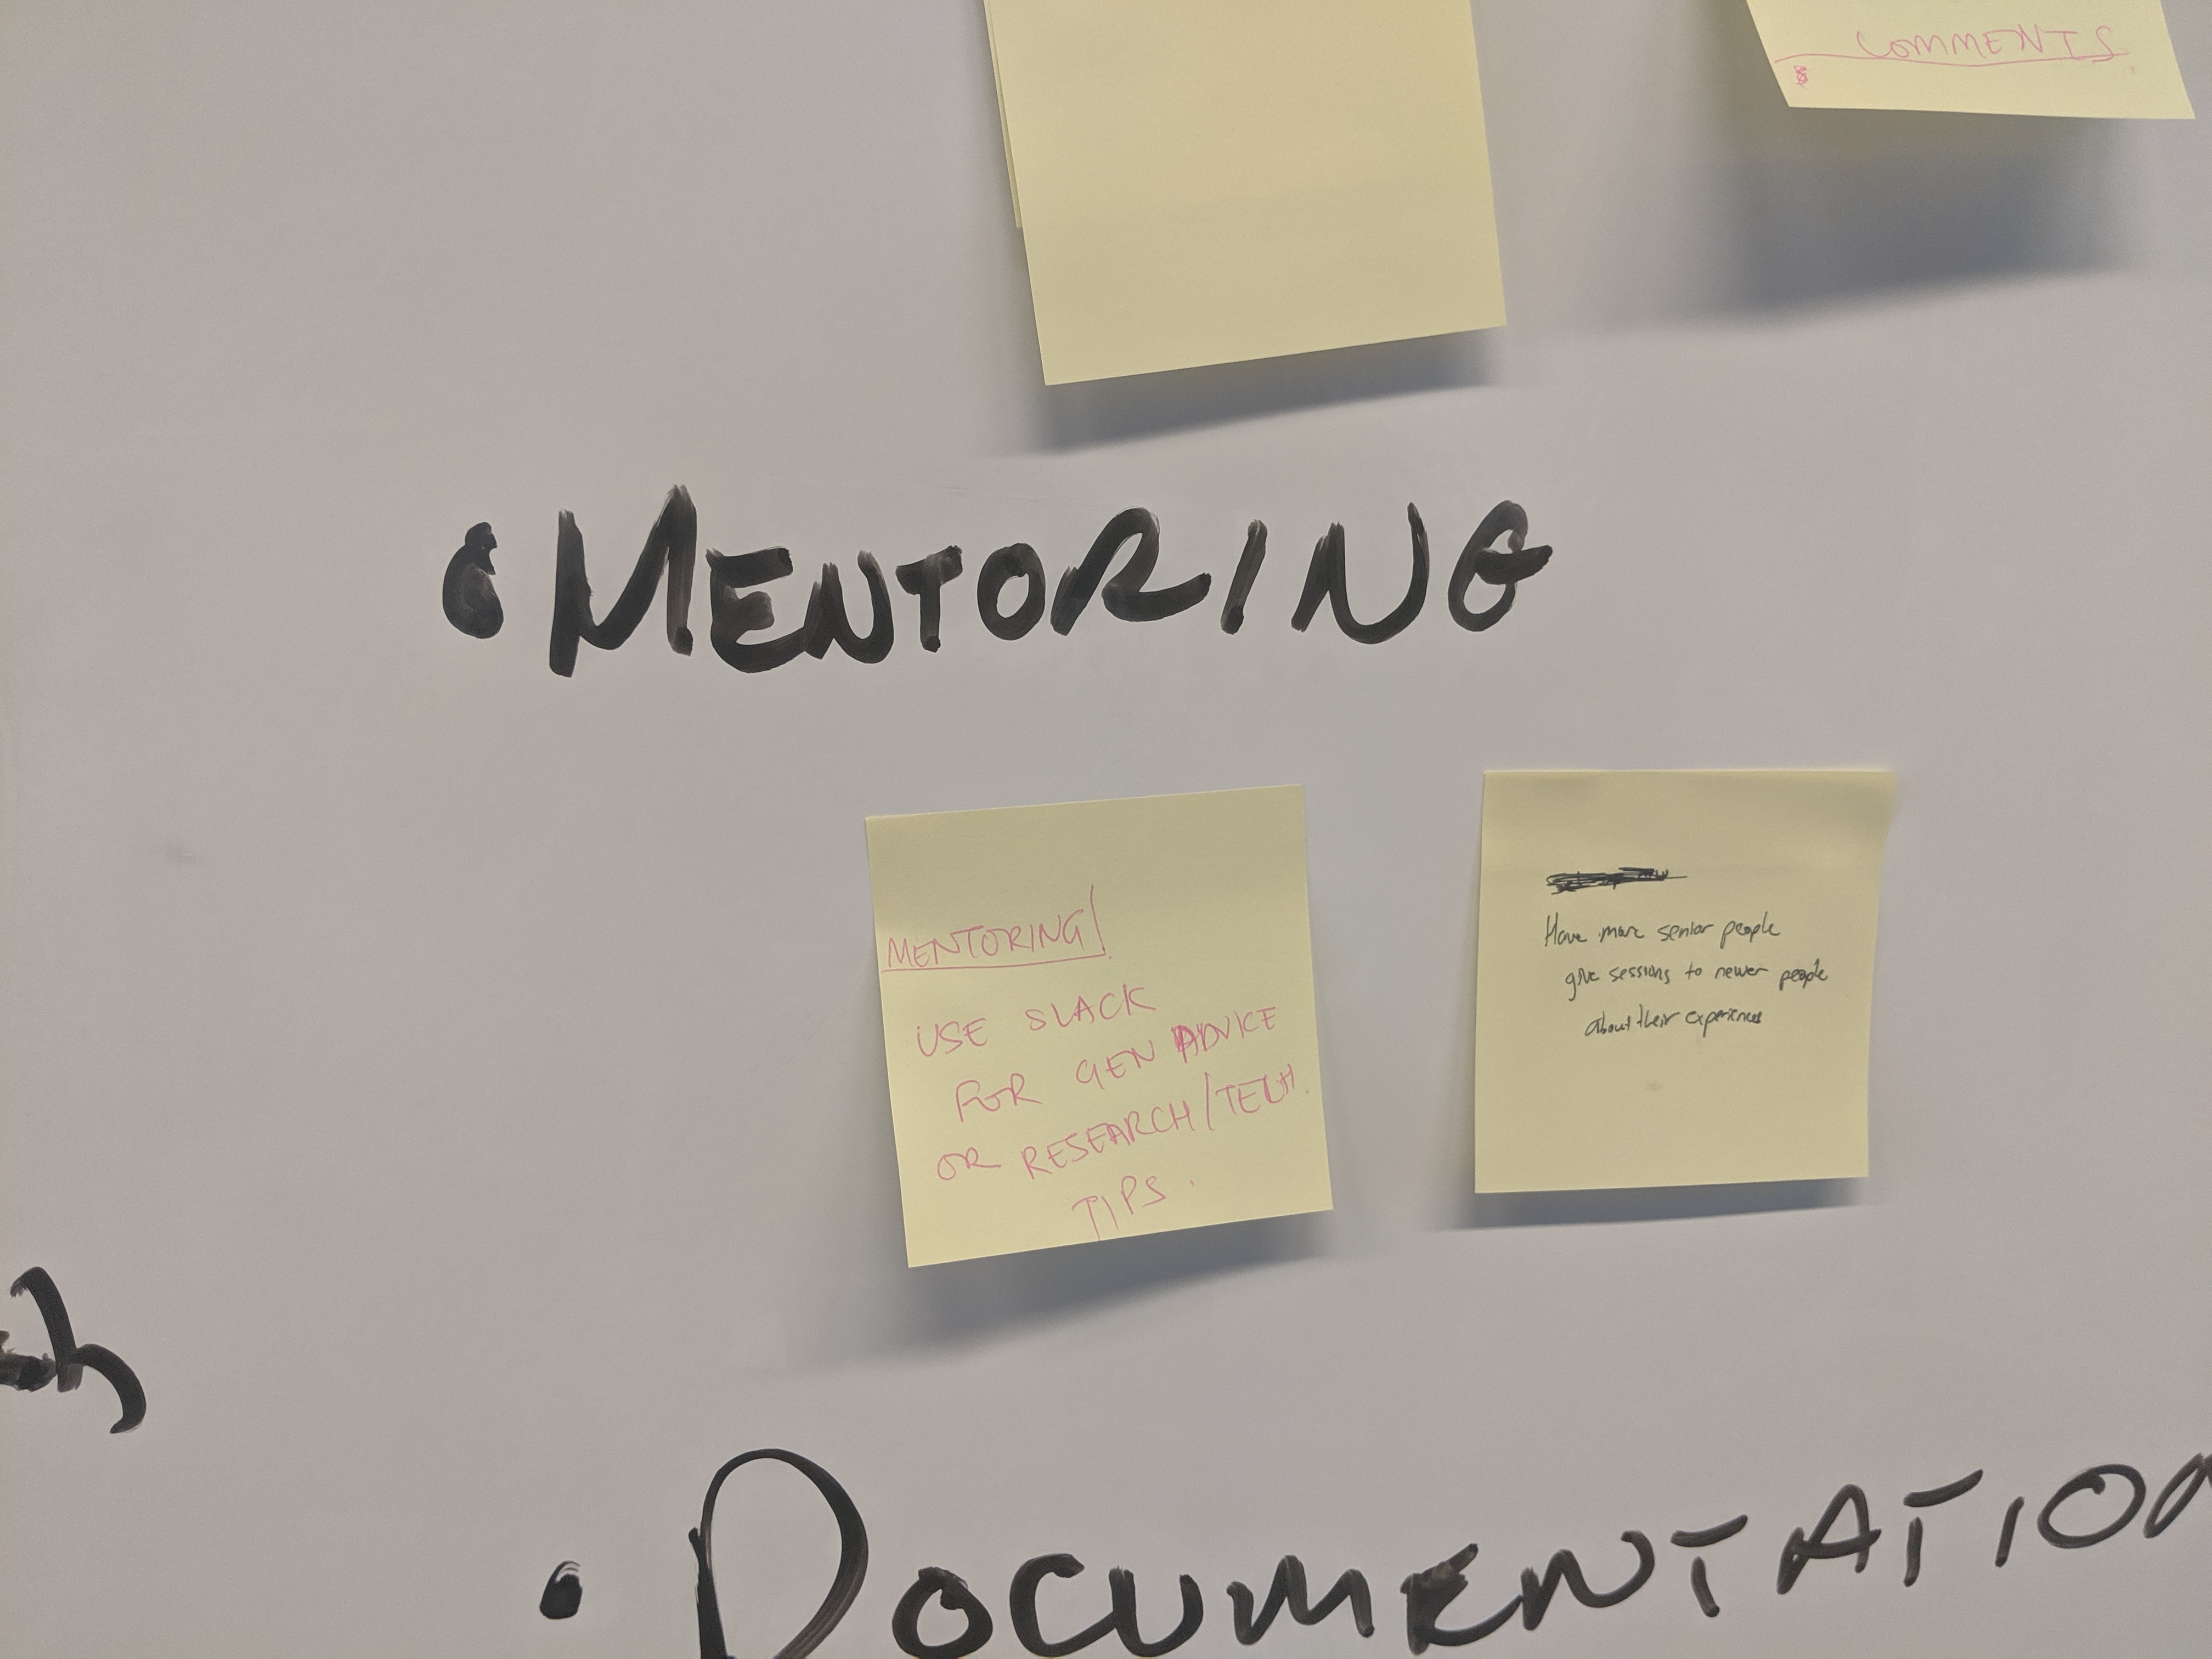 COMMENTS
• MENTORING
MENTORING!
USE SLACK
FOR GEN ADVICE
OR RESEARCH/TECH.
TIPS.
Have more senior people
give sessions to newer people
about their experiences
• DOCUMENTATION